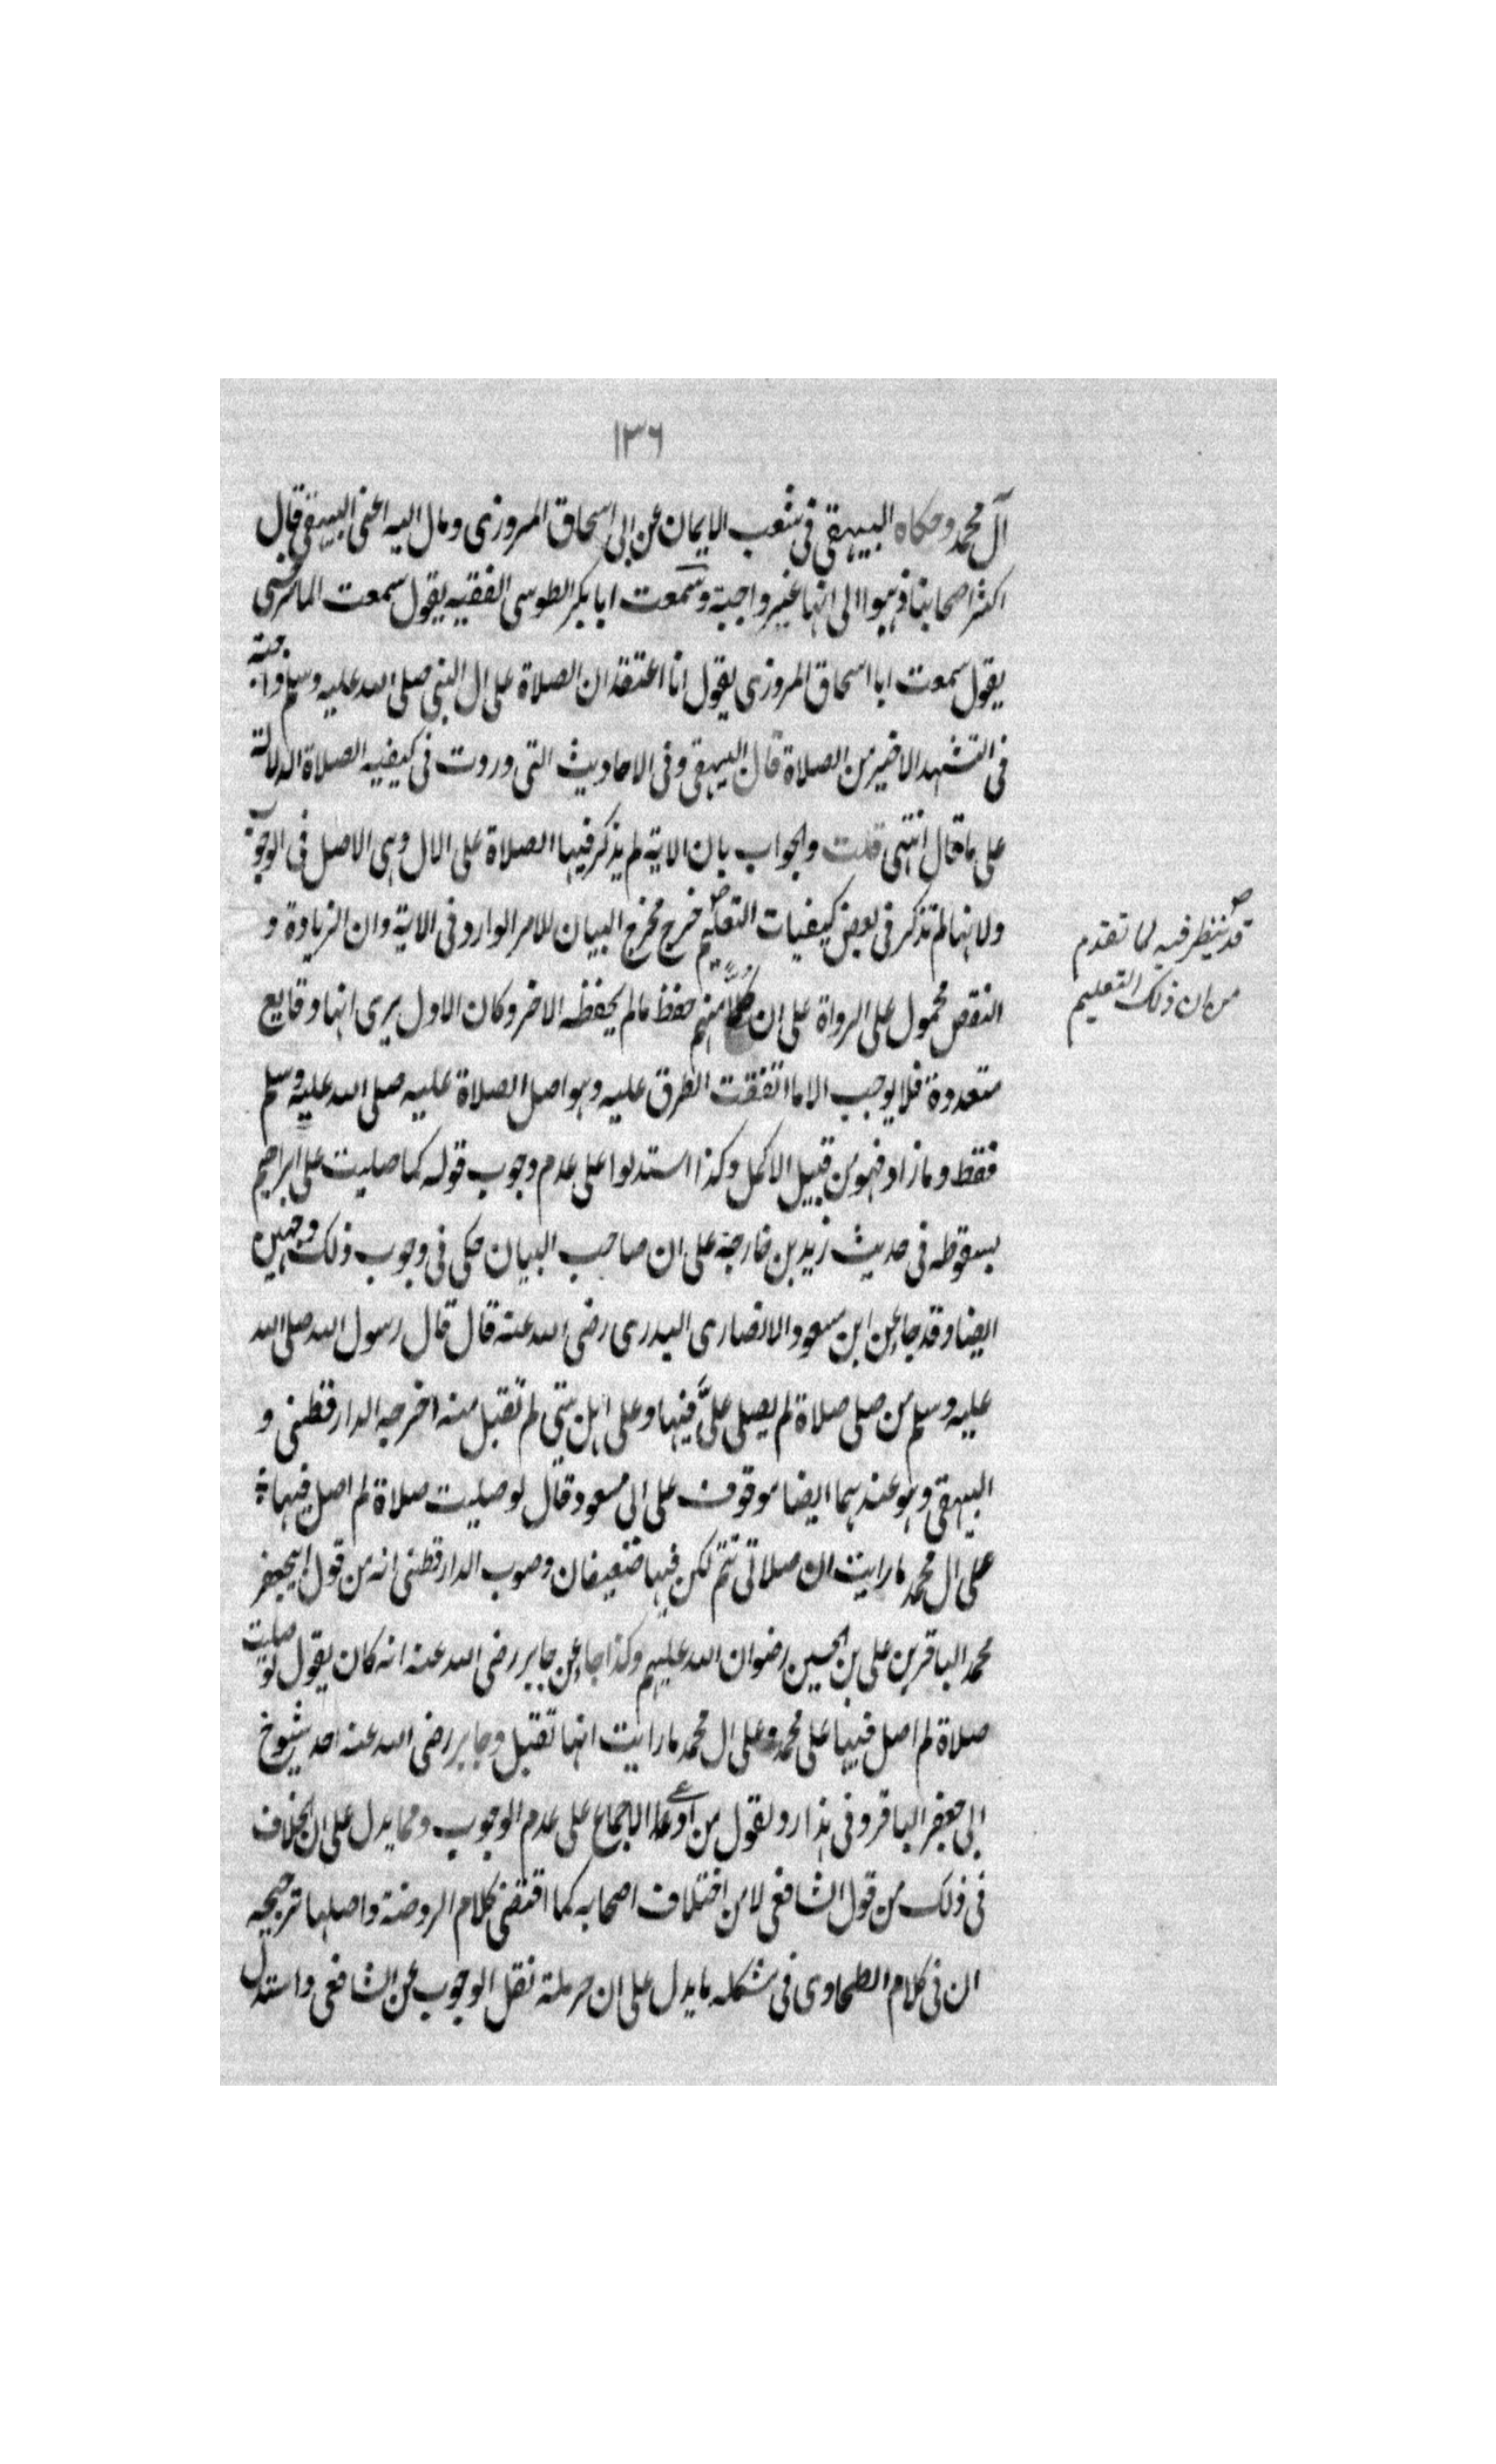 ١٣٦
آل محمد وحكاه البيهقى فى شعب الايمان عن ابى اسحاق المروزى ومال اليه اعنى البيهقى قال
اكثر اصحابنا ذهبوا الى انها غير واجبة وسمعت ابا بكر الطوسى الفقيه يقول سمعت الماسرجسى
يقول سمعت ابا اسحاق المروزى يقول انا اعتقد ان الصلاة على ال النبى صلى الله عليه وسلم واجبة
فى التشهد الاخير من الصلاة قال البيهقى وفى الاحاديث التى وردت فى كيفيه الصلاة الدلالة
على ما قال انتهى قلت والجواب بان الاية لم يذكر فيها الصلاة على الال وهى الاصل فى الوجوب
ولانها لم تذكر فى بعض كيفيات التعليم خرج مخرج البيان للامر الوارد فى الاية وان الزيادة و
النقص محمول على الرواة على ان كلا منهم حفظ مالم يحفظه الاخر وكان الاول يرى انها وقايع
متعددة فلا يوجب الا ما اتفقت الطرق عليه وهو اصل الصلاة عليه صلى الله عليه وسلم
فقط وما زاد فهو من قبيل الاكمل وكذا استدلوا على عدم وجوب قوله كما صليت على ابراهيم
بسقوطه فى حديث زيد بن خارجة على ان صاحب البيان حكى فى وجوب ذلك وجهين
ايضا وقد جاء عن ابن مسعود الانصارى البدرى رضى الله عنه قال قال رسول الله صلى الله
عليه وسلم من صلى صلاة لم يصلى علىَّ فيها وعلى اهل بيتى لم تقبل منه اخرجه الدارقطنى و
البيهقى وهو عندهما ايضا موقوف على ابى مسعود قال لو صليت صلاة لم اصل فيها
على ال محمد ما رايت ان صلاتى تتم لكن فيها ضعيفان وصوب الدارقطنى انه من قول ابى جعفر
محمد الباقر بن على بن الحسين رضوان الله عليهم وكذا جاء عن جابر رضى الله عنه انه كان يقول لو صليت
صلاة لم اصل فيها على محمد وعلى ال محمد ما رايت انها تقبل وجابر رضى الله عنه احد شيوخ
ابى جعفر الباقر وفى هذا رد لقول من ادعا الاجماع على عدم الوجوب ومما يدل على ان الخلاف
فى ذلك من قول الشافعى لا من اختلاف اصحابه كما اقتضى كلام الروضة واصلها ترجيحه
ان فى كلام الطحاوى فى مشكله ما يدل على ان حرملة نقل الوجوب عن الشافعى واستدل
قد ينظر فيه لما تقدم
من ان ذلك التعليم